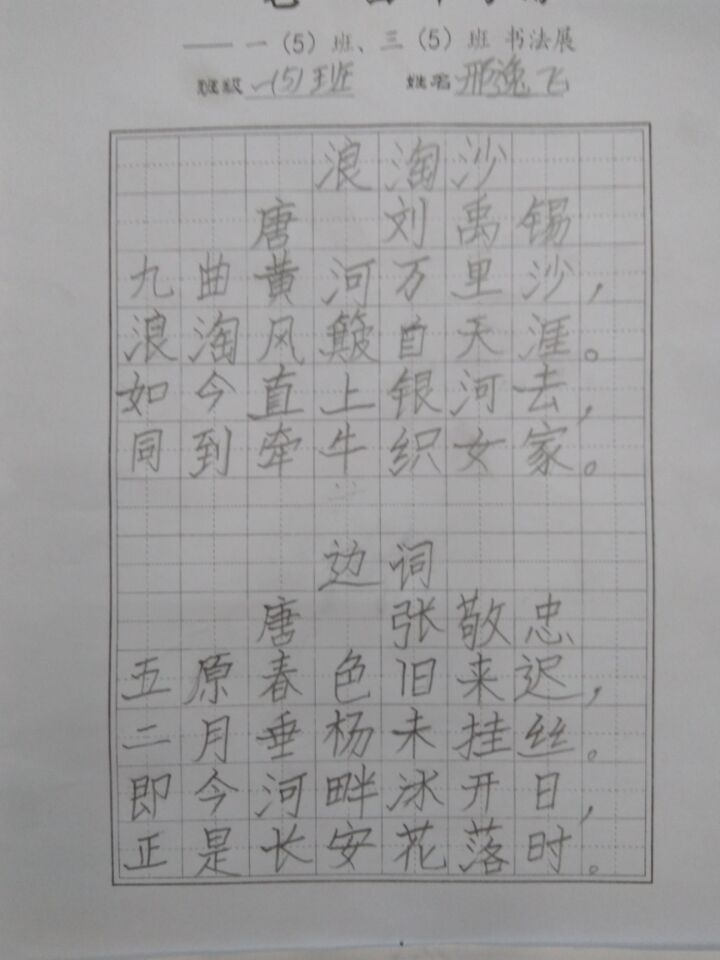 —— 一（5）班、三（5）班 书法展
班级 一(5)班 姓名 邢逸飞
浪淘沙
唐 刘禹锡
九曲黄河万里沙，
浪淘风簸自天涯。
如今直上银河去，
同到牵牛织女家。
边词
唐 张敬忠
五原春色旧来迟，
二月垂杨未挂丝。
即今河畔冰开日，
正是长安花落时。